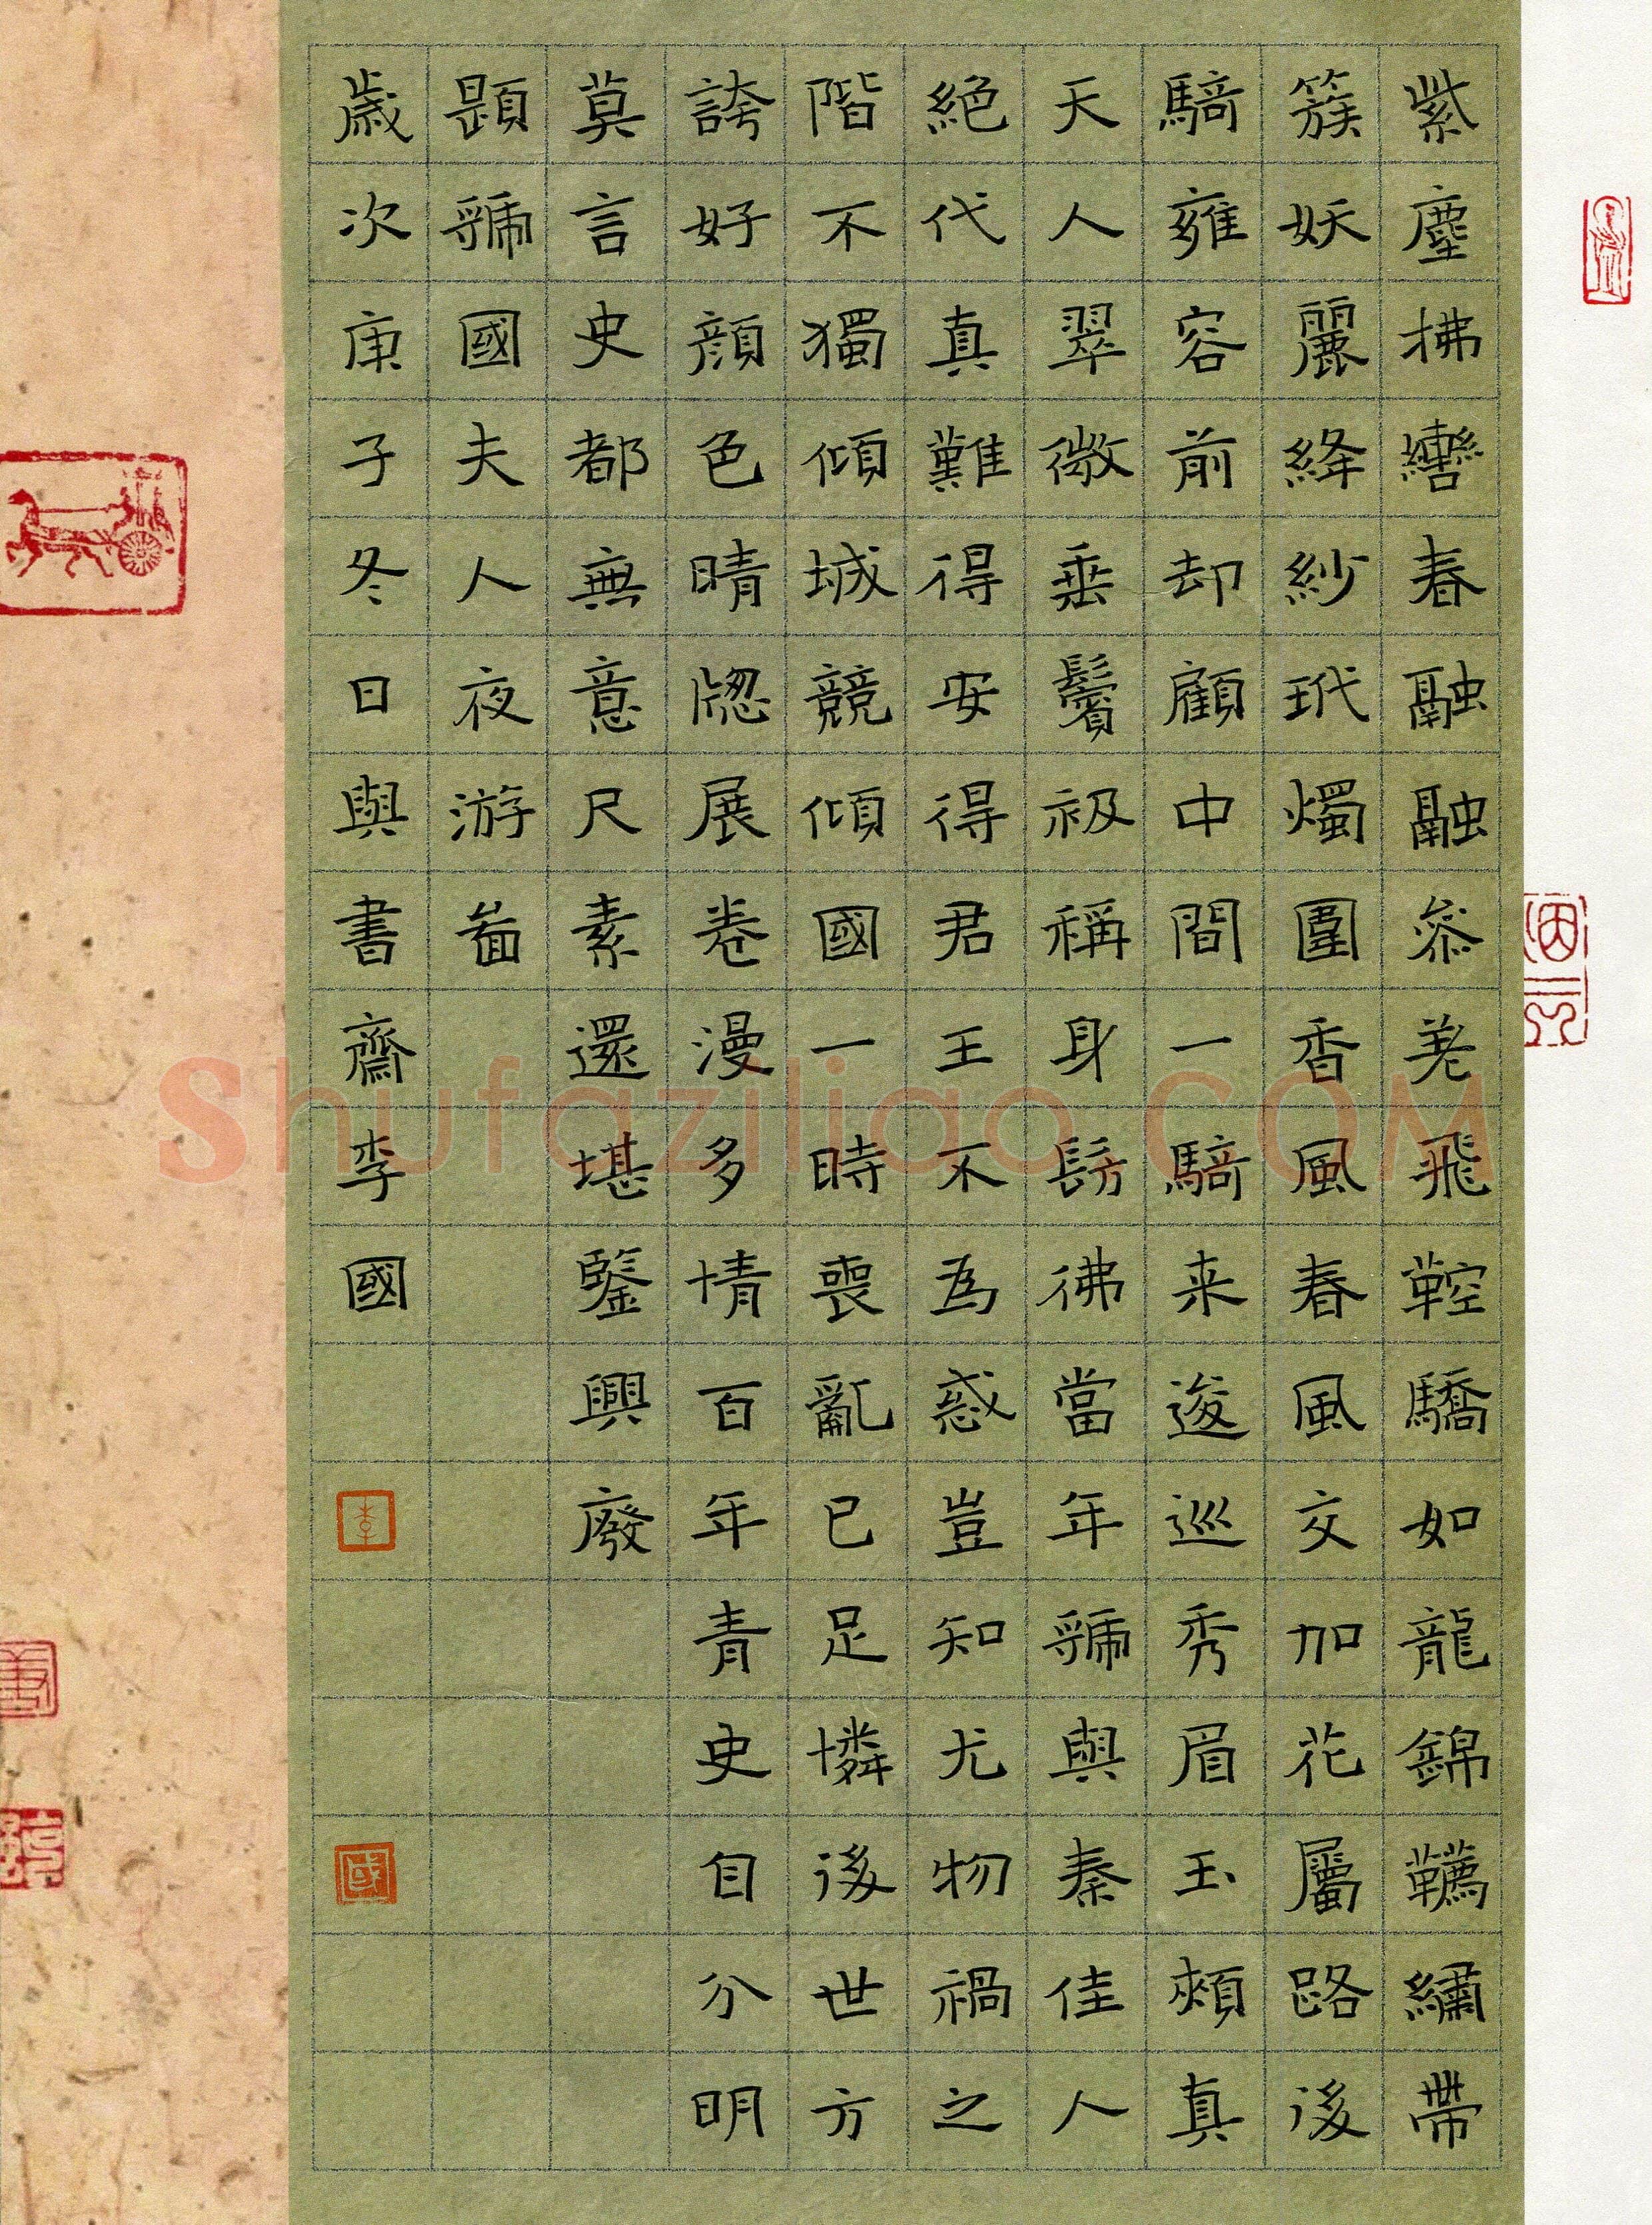 紫塵拂轡春融融叅差飛鞚驕如龍錦韉繡帶
簇妖麗絳紗玳燭圍香風春風交加花屬路後
騎雍容前却顧中間一騎来逡巡秀眉玉頰真
天人翠微垂鬢衱稱身髣彿當年虢與秦佳人
絶代真難得安得君王不為惑豈知尤物禍之
階不獨傾城競傾國一時喪亂已足憐後世方
誇好顔色晴窓展卷漫多情百年青史自分明
莫言史都無意尺素還堪鑒興廢
題虢國夫人夜游啚
歲次庚子冬日與書齋李國
shufaziliao.COM